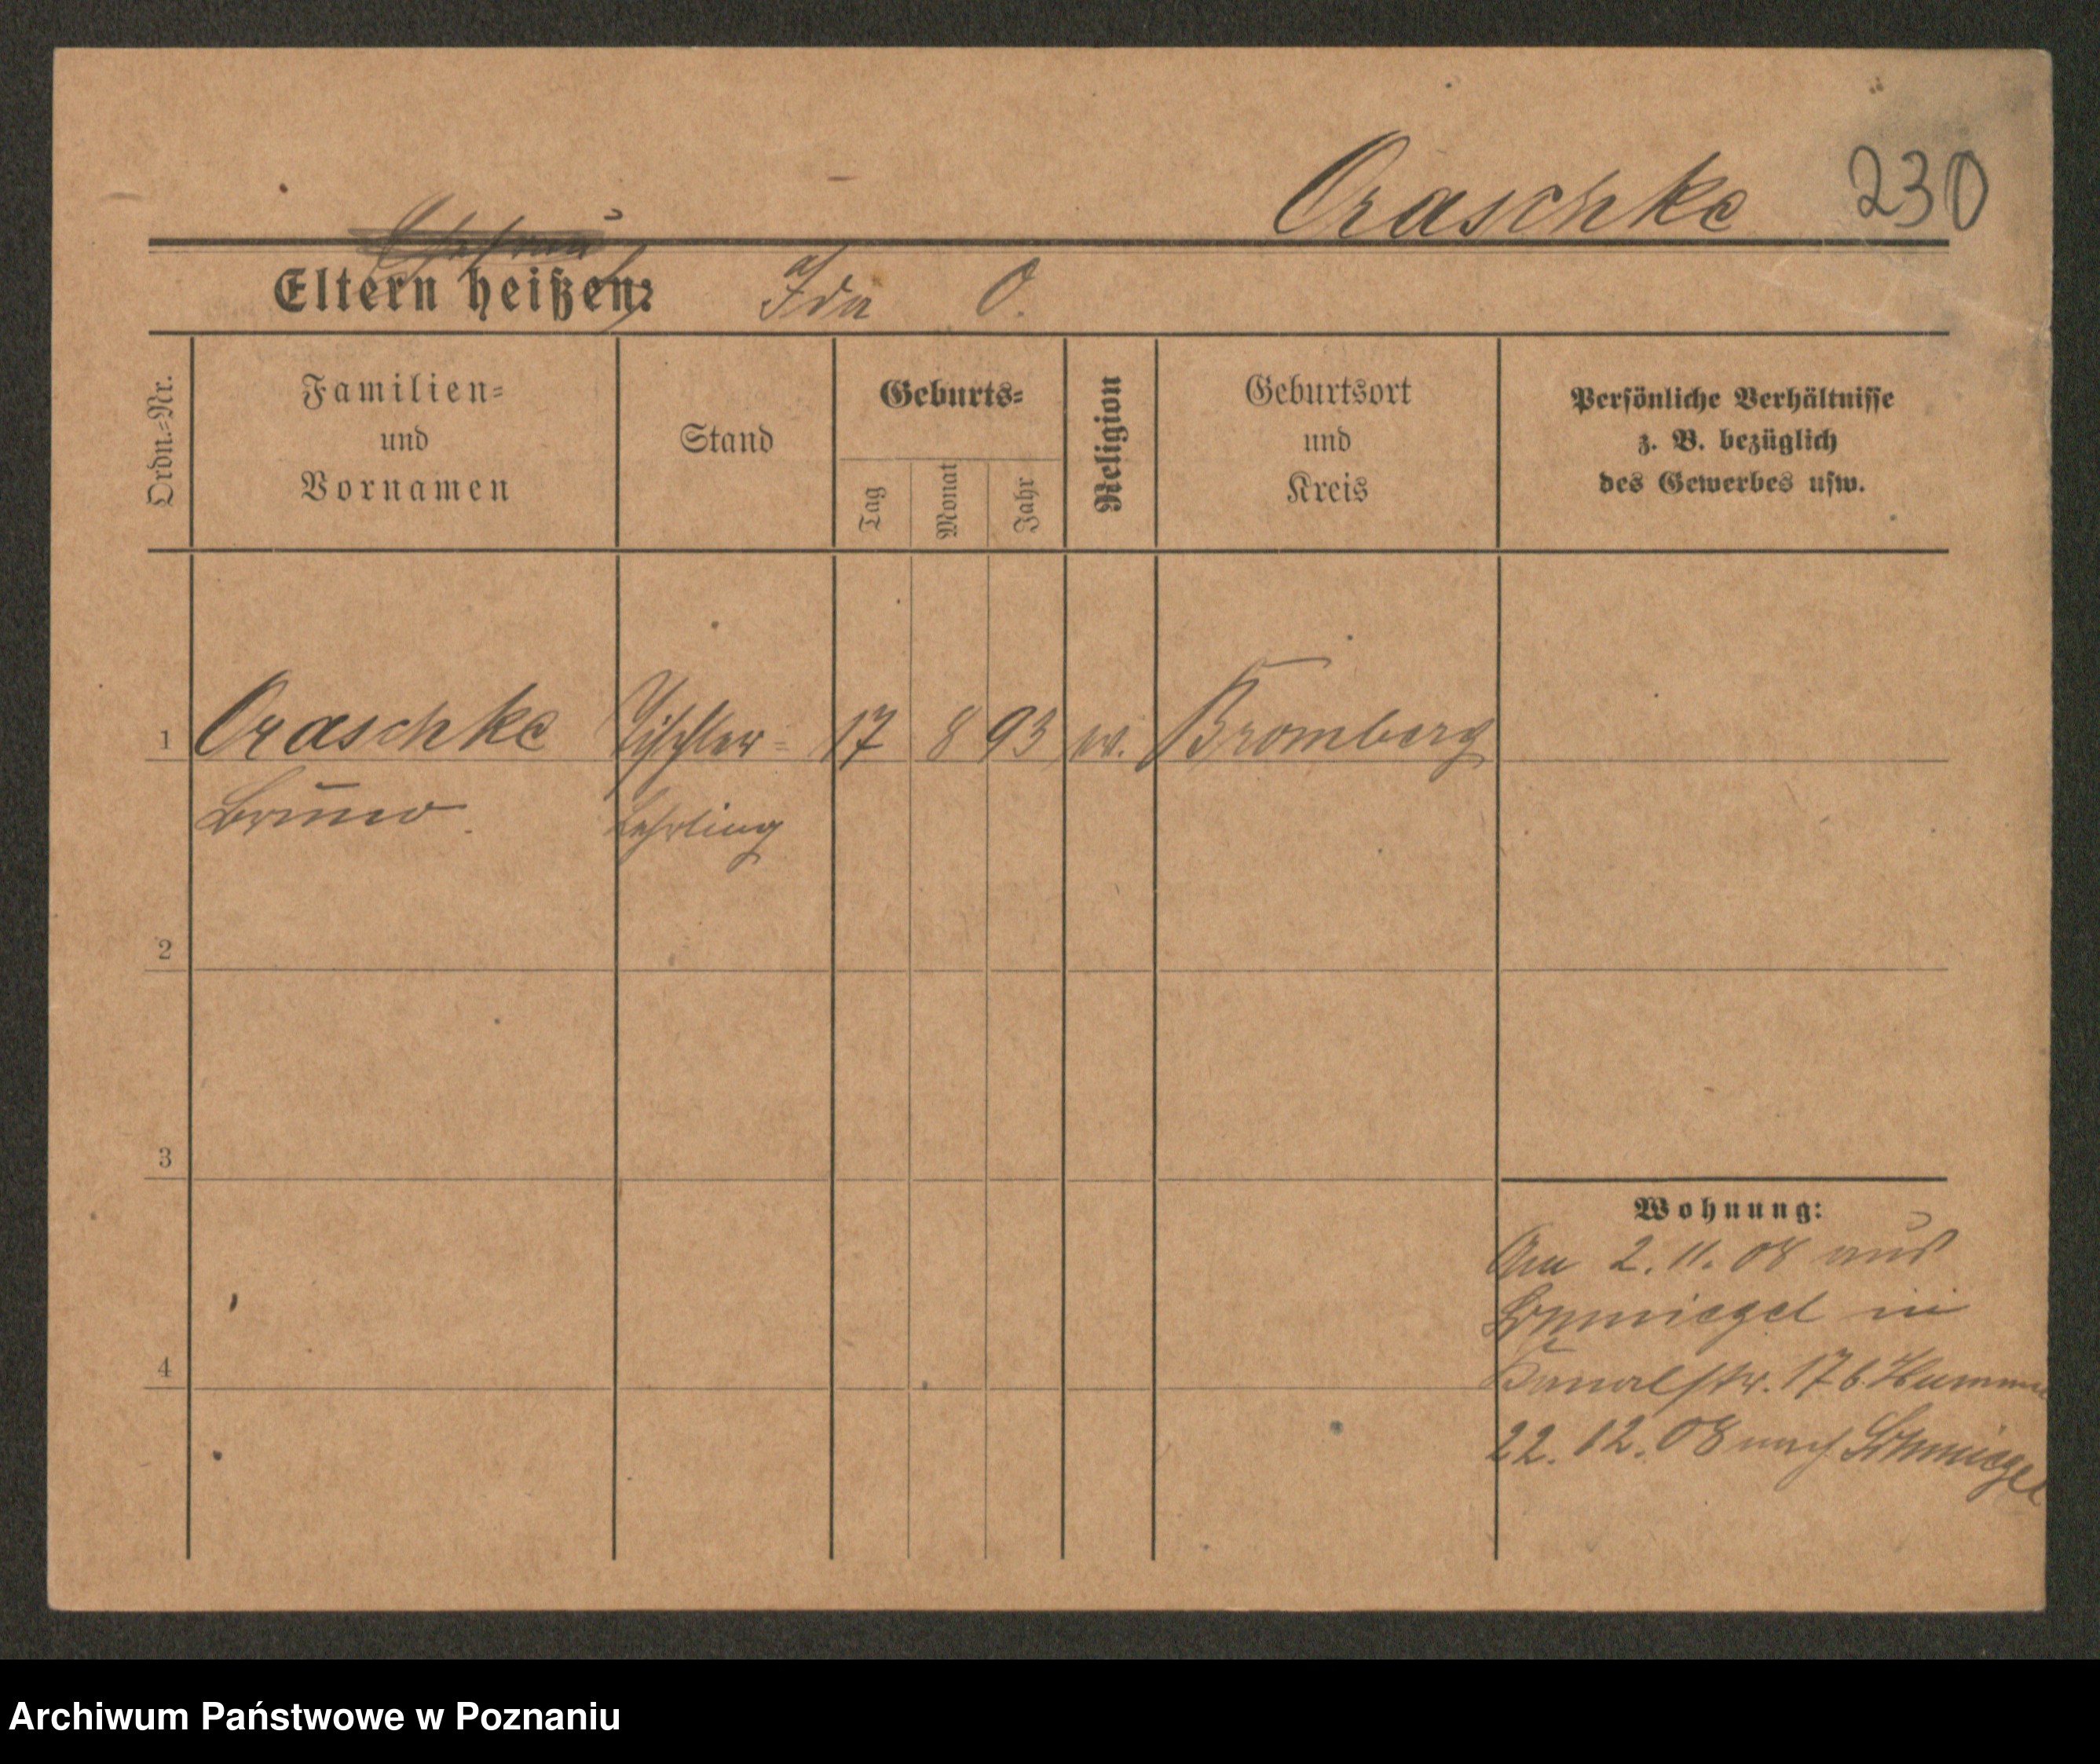 Oraschke 230
Ehefrau
Eltern heißen: Ida O.
Ordn.=Nr.
Familien=
und
Vornamen
Stand
Geburts=
Tag
Monat
Jahr
Religion
Geburtsort
und
Kreis
Persönliche Verhältnisse
z. B. bezüglich
des Gewerbes usw.
1 Oraschke Tischler= 17 8 93 ev. Bromberg
Bruno Lehrling
2
3
4
Wohnung:
An 2. 11. 08 aus
Schmiegel in
Kanalstr. 17 b.
22. 12. 08 nach Schmiegel
Archiwum Państwowe w Poznaniu